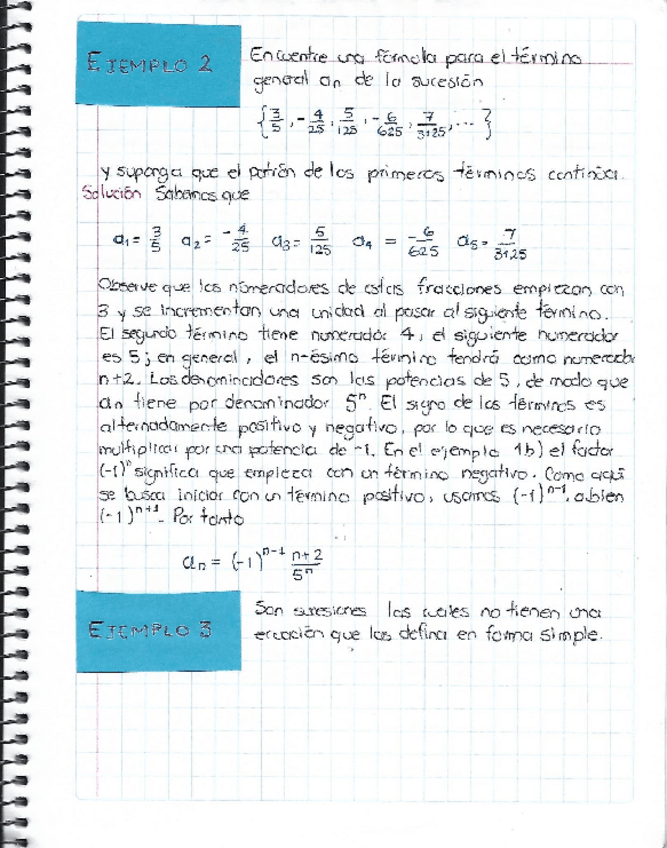 EJEMPLO 2
Encuentre una fórmula para el término
general an de la sucesión
{3/5, -4/25, 5/125, -6/625, 7/3125, ... }
y suponga que el patrón de los primeros términos continúa.
Solución Sabemos que
a1 = 3/5 a2 = -4/25 a3 = 5/125 a4 = -6/625 a5 = 7/3125
Observe que los numeradores de estas fracciones empiezan con
3 y se incrementan una unidad al pasar al siguiente término.
El segundo término tiene numerador 4, el siguiente numerador
es 5; en general, el n-ésimo término tendrá como numerador
n+2. Las denominadores son las potencias de 5, de modo que
an tiene por denominador 5^n. El signo de los términos es
alternadamente positivo y negativo, por lo que es necesario
multiplicar por una potencia de -1. En el ejemplo 1b) el factor
(-1)^n significa que empieza con un término negativo. Como aquí
se busca iniciar con un término positivo, usamos (-1)^n-1, o bien
(-1)^n+1. Por tanto
an = (-1)^n-1 n+2/5^n
EJEMPLO 3
Son sucesiones las cuales no tienen una
ecuación que las defina en forma simple.